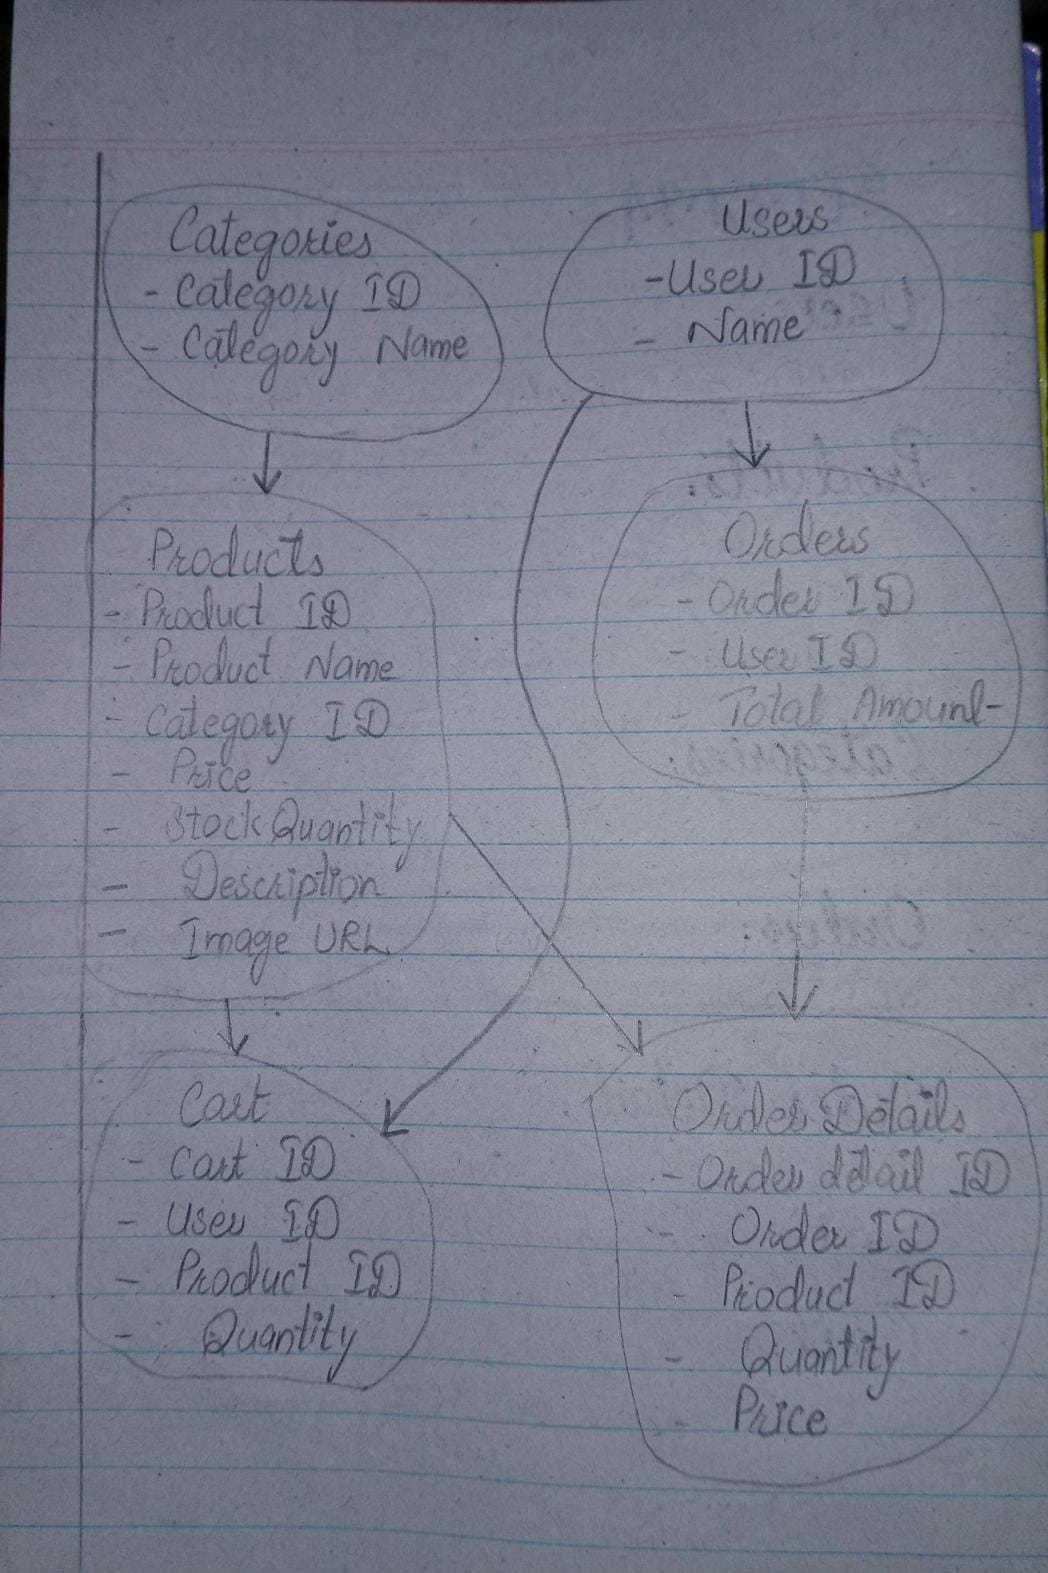 Categories
- Category ID
- Category Name
Users
- User ID
- Name
Products
- Product ID
- Product Name
- Category ID
- Price
- Stock Quantity
- Description
- Image URL
Orders
- Order ID
- User ID
- Total Amount
Cart
- Cart ID
- User ID
- Product ID
- Quantity
Order Details
- Order detail ID
- Order ID
- Product ID
- Quantity
- Price